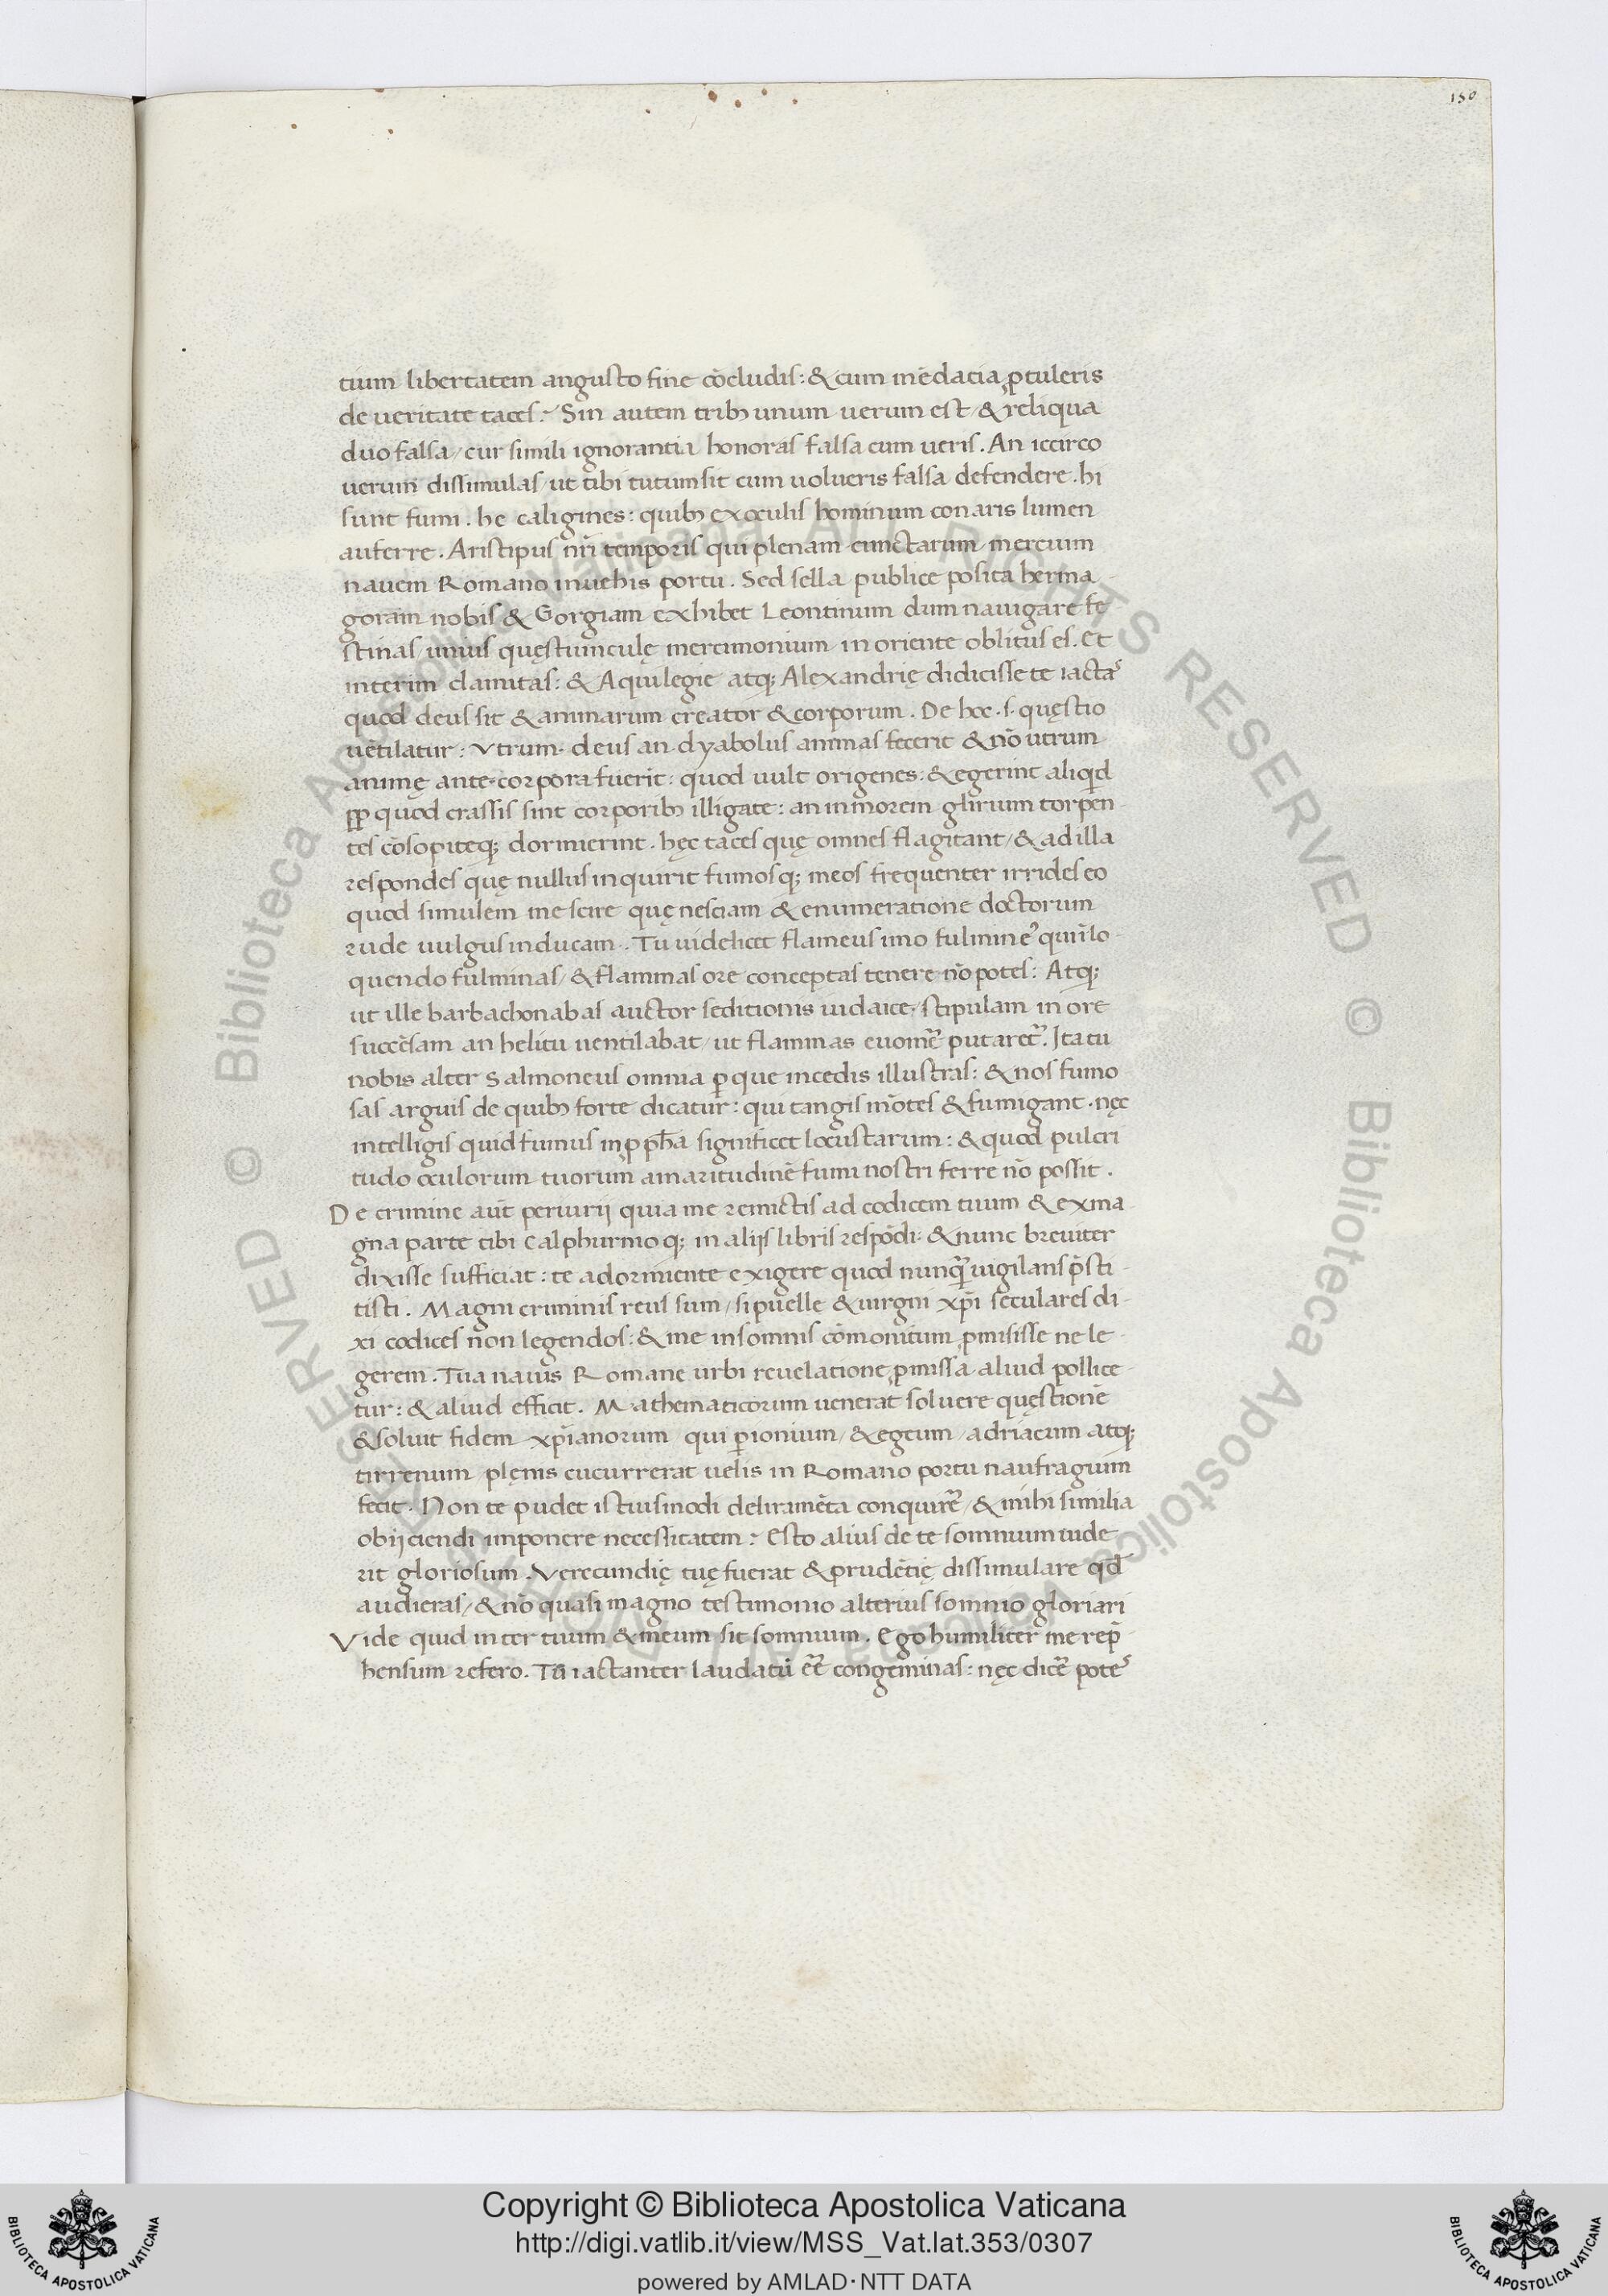 150
tium libertatem angusto fine cōcludis: & cum mēdacia ꝓtuleris
de ueritate taces? Sin autem tribꝫ unum uerum est / & reliqua
duo falsa / cur simili ignorantia honoras falsa cum ueris. An iccirco
uerum dissimulas / ut tibi tutum sit cum uolueris falsa defendere. hi
sunt fumi. he caligines: quibꝫ ex oculis hominum conaris lumen
auferre. Aristipus nr̄i temporis qui plenam cunctarum mercium
nauem Romano inuehis portu. Sed sella publice posita herma
goram nobis & Gorgiam exhibet Leontinum dum nauigare fe
stinas / unius quęstiunculę mercimonium in oriente oblitus es. Et
interim clamitas: & Aquilegie atqꝫ Alexandrię didicisse te iactaˢ
quod deus sit & animarum creator & corporum. De hoc .s. quęstio
uētilatur: Vtrum deus an dyabolus animas fecerit & nō utrum
animę ante corpora fuerit: quod uult origenes: & egerint aliqͥd
ꝓp quod crassis sint corporibꝫ illigate: an in morem glirium torpen
tes cōsopiteqꝫ dormierint. hęc taces quę omnes flagitant / & ad illa
respondes quę nullus inquirit fumosqꝫ meos frequenter irrides eo
quod simulem me scire quę nesciam & enumeratione doctorum
rude uulgus inducam. Tu uidelicet flameus imo fulmineꝰ qui ī lo
quendo fulminas / & flammas ore conceptas tenere nō potes: Atqꝫ
ut ille barbachonabas auctor seditionis iudaice / stipulam in ore
succēsam an helitu uentilabat / ut flammas euomēr̄ putaret᷑. Ita tu
nobis alter Salmoneus omnia ꝑ que incedis illustras: & nos fumo
sas arguis de quibꝫ forte dicatur: qui tangis mōtes & fumigant. nęc
intelligis quid fumus in ꝓph̄a significet locustarum: & quod pulcri
tudo oculorum tuorum amaritudinē fumi nostri ferre nō possit.
De crimine aūt periurij quia me remictis ad codicem tuum & ex ma
gna parte tibi Calphurnioqꝫ in alijs libris respōdi: & nunc breuiter
dixisse sufficiat: te a dormiente exigere quod nunqͣ uigilans p̄sti
tisti. Magni criminis reus sum / si puelle & uirgini xp̄i seculares di
xi codices non legendos: & me in somnis cōmonitum ꝓmisisse ne le
gerem. Tua nauis Romane urbi reuelatione ꝓmissa aliud pollice
tur: & aliud efficit. Mathematicorum uenerat soluere quęstionē
& soluit fidem xp̄ianorum qui ꝑ ionium / & egeum / adriacum atqꝫ
tirrenum plęnis cucurrerat uelis in Romano portu naufragium
fecit. Non te pudet istiusmodi deliramēta conquirēr̄ / & mihi similia
obijciendi imponere necessitatem? Esto alius de te somnium uide
rit gloriosum. Verecundię tuę fuerat & prudētię dissimulare qd̄
audieras / & nō quasi magno testimonio alterius somnio gloriari
Vide quid inter tuum & meum sit somnium. Ego humiliter me rep̄
hensum refero. Tu iactanter laudatū eē congeminas: nęc dicēr̄ poteˢ
Copyright © Biblioteca Apostolica Vaticana
http://digi.vatlib.it/view/MSS_Vat.lat.353/0307
powered by AMLAD·NTT DATA
BIBLIOTECA APOSTOLICA VATICANA
BIBLIOTECA APOSTOLICA VATICANA
© Biblioteca Apostolica Vaticana ALL RIGHTS RESERVED
© Biblioteca Apostolica Vaticana ALL RIGHTS RESERVED